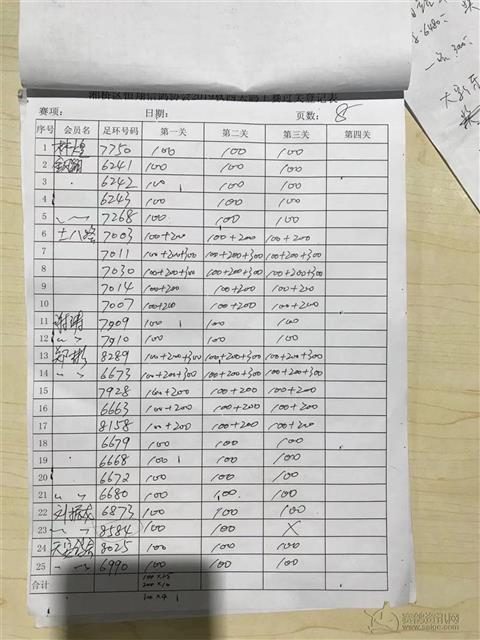 湘桥区恒翔信鸽协会2019秋四关鸽王赛过关登记表
赛项： 日期： 页数： 8
序号 会员名 足环号码 第一关 第二关 第三关 第四关
1 林煌 7750 100 100 100
2 6241 100 100 100
3 6242 100 100 100
4 6243 100 100 100
5 7268 100 100 100
6 土八路 7003 100+200 100+200 100+200
7 7011 100+200+300 100+200+300 100+200+300
8 7030 100+200+300 100+200+300 100+200+300
9 7014 100+200 100+200 100+200
10 7007 100+200 100+200 100+200
11 谢靖 7909 100 100 100
12 7910 100 100 100
13 郑彬 8289 100+200+300 100+200+300 100+200+300
14 6673 100+200+300 100+200+300 100+200+300
15 7928 100+200 100+200 100+200
16 6663 100+200 100+200 100+200
17 8158 100+200 100+200 100+200
18 6679 100 100 100
19 6668 100 100 100
20 6672 100 100 100
21 6680 100 100 100
22 刘振成 6873 100 100 100
23 8584 100 100 X
24 8025 100 100 100
25 6990 100 100 100
合计 100×25
200×10
300×4
赛鸽资讯网
www.saige.com